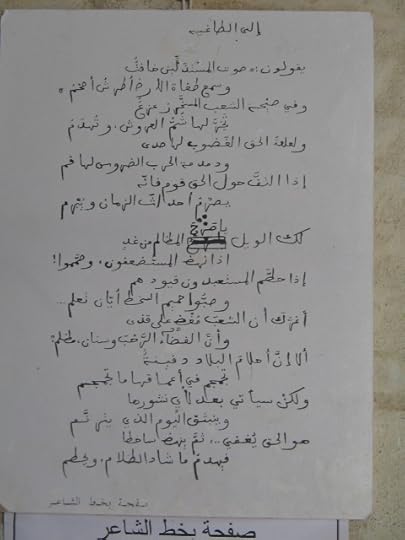 إلى الطاغيه
يقولون: «صوت المستذلّين خافتٌ
وسمع طغاة الأرض أطرش أضخم»
وفي صيحة الشعب المسخّر زعزعٌ
تخرّ لها شُمّ العروش، وتُهدَم
ولعلعة الحق الغضوب لها صدى
ودمدمة الحرب الضروس لها فم
إذا التفّ حول الحق قوم فانّه
يصرّم أحداث الزمان ويبرم
لك الويل يا صرح المظالم من غدٍ
اذا نهض المستضعفون، وصمّموا!
إذا حطّم المستعبدون قيودهم
وصبّوا حميم السخط أيّان تعلم...
أغرّك أن الشعب مُغضٍ على قذى
وأنّ الفضاء الرّحب وسنان، مظلم؟
ألا إنّ أحلام البلاد دفينةٌ
تجمجم في أعماقها ما تجمجم
ولكن سيأتي بعد لأي نشورها
وينبثق اليوم الذي يترنّم
هو الحق يُغفي... ثمّ ينهض ساخطا
فيهدم ما شاد الظلام، ويحطم
صفحة بخط الشاعر
صفحة بخط الشاعر